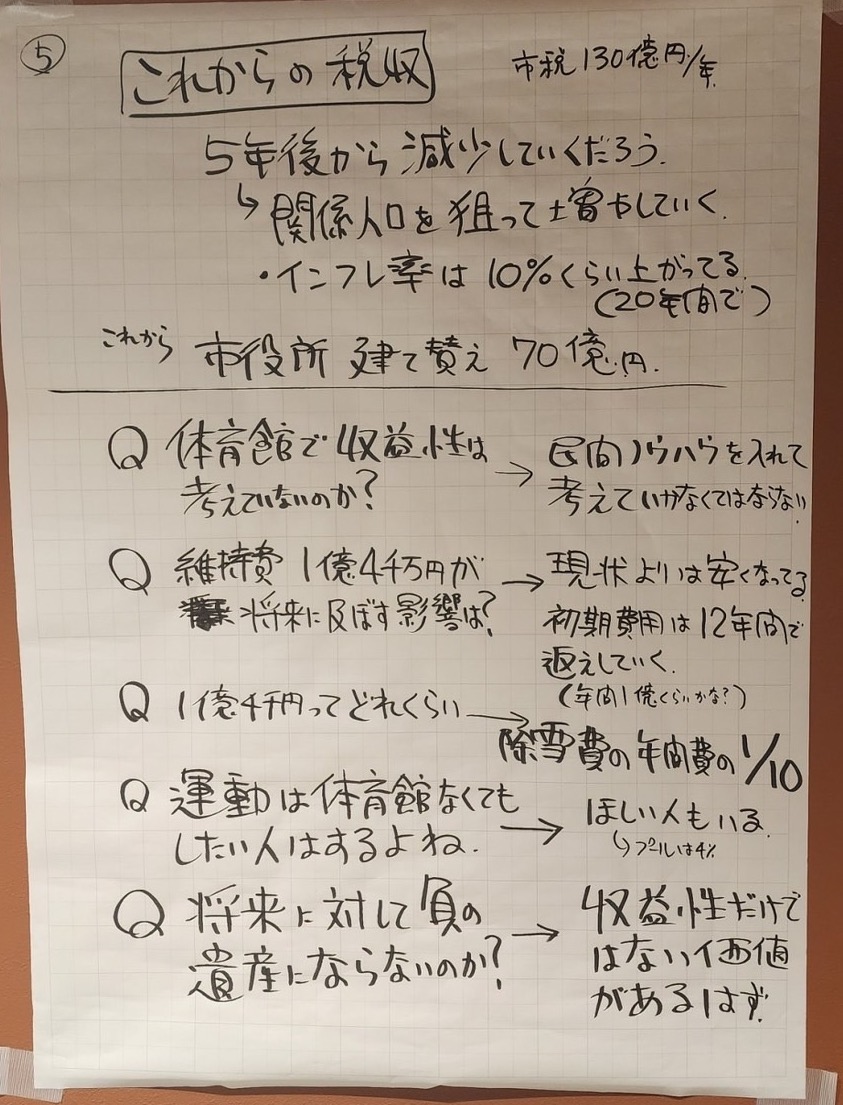 ⑤
これからの税収
市税130億円/年
5年後から減少していくだろう.
↳関係人口を狙って増やしていく.
・インフレ率は10%くらい上がってる.
(20年間で)
これから 市役所 建て替え 70億円.
Q 体育館で収益性は
考えていないのか?
→ 民間ノウハウを入れて
考えていかなくてはならない.
Q 維持費1億4千万円が
将来に及ぼす影響は?
→ 現状よりは安くなってる.
初期費用は12年間で
返えしていく.
(年間1億くらいかな?)
Q 1億4千円ってどれくらい
→ 除雪費の年間費の1/10
Q 運動は体育館なくても
したい人はするよね.
→ ほしい人もいる.
↳プールは4%
Q 将来に対して負の
遺産にならないのか?
→ 収益性だけで
はない価値
があるはず.